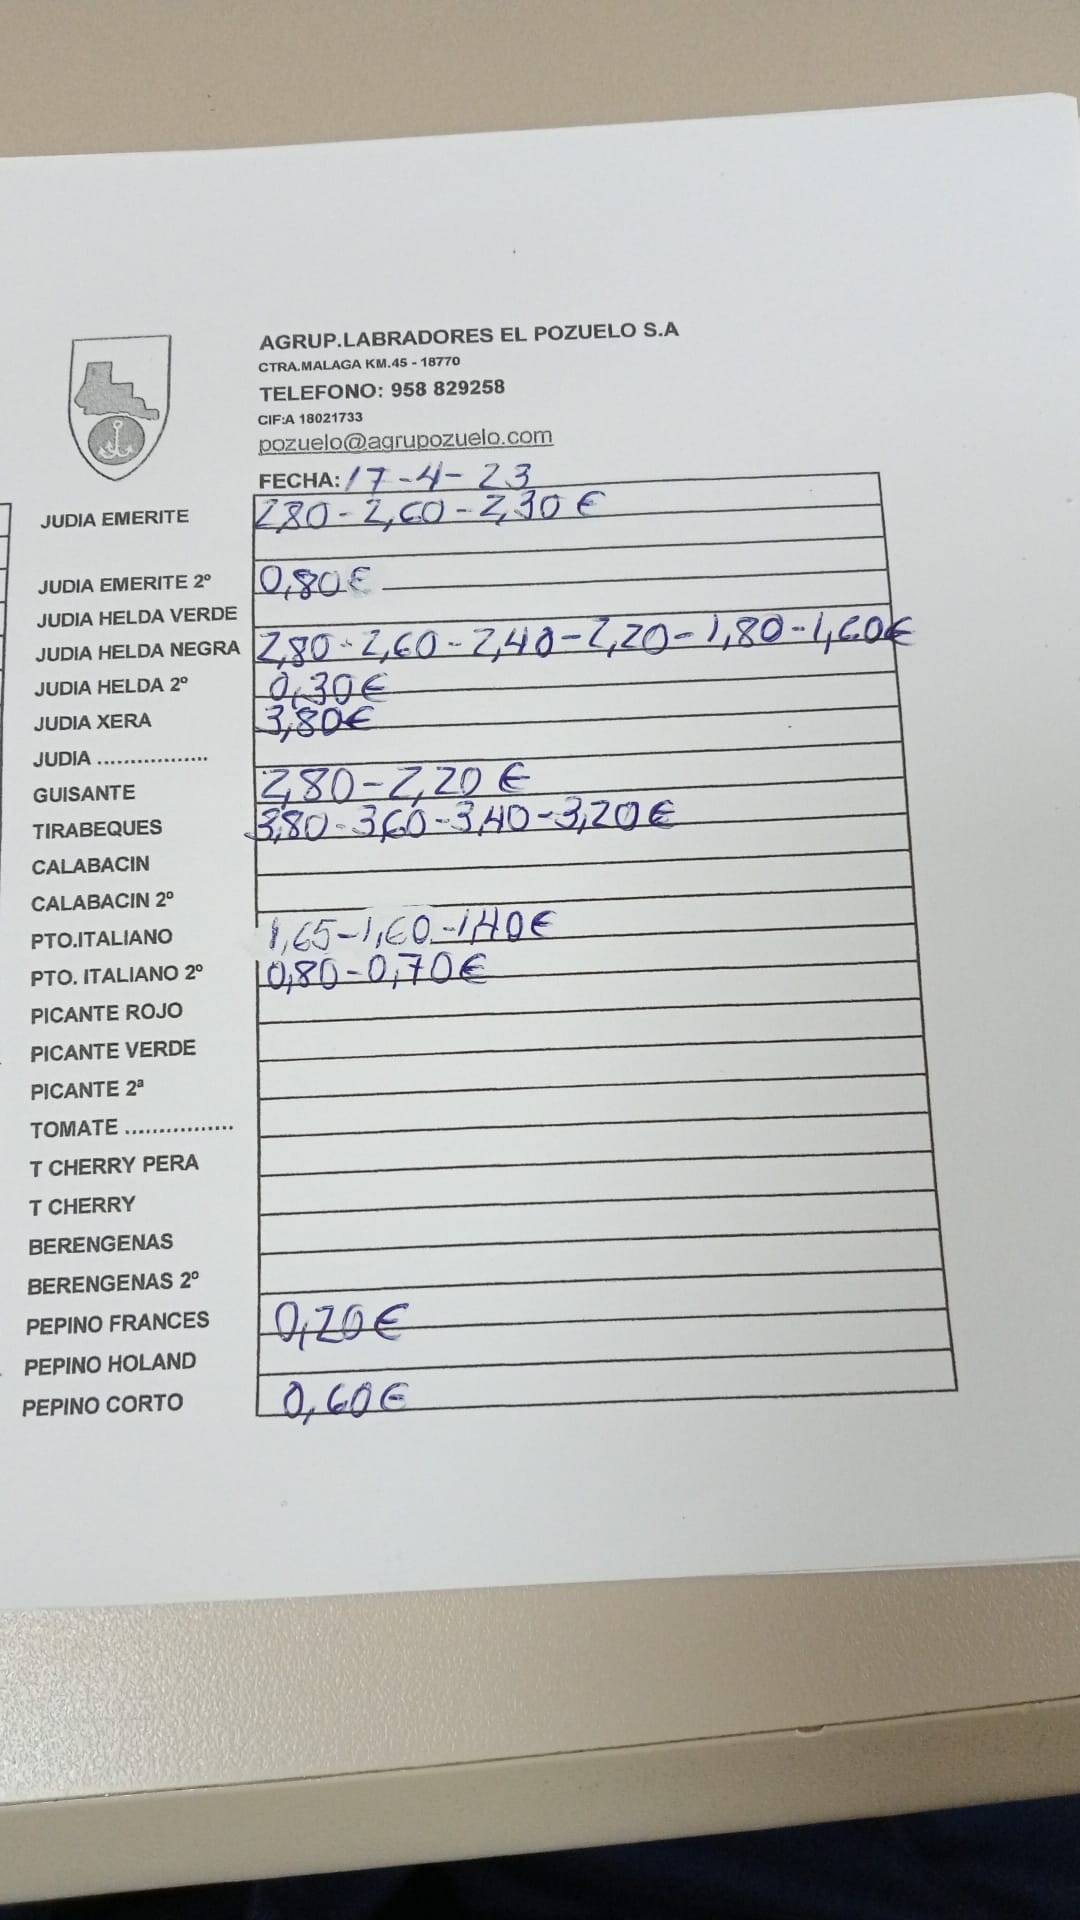 AGRUP.LABRADORES EL POZUELO S.A
CTRA.MALAGA KM.45 - 18770
TELEFONO: 958 829258
CIF:A 18021733
pozuelo@agrupozuelo.com
FECHA: 17-4-23
JUDIA EMERITE 2,80-2,60-2,30€
JUDIA EMERITE 2º 0,80€
JUDIA HELDA VERDE
JUDIA HELDA NEGRA 2,80-2,60-2,40-2,20-1,80-1,60€
JUDIA HELDA 2º 0,30€
JUDIA XERA 3,80€
JUDIA .................
GUISANTE 2,80-2,20€
TIRABEQUES 3,80-3,60-3,40-3,20€
CALABACIN
CALABACIN 2º
PTO.ITALIANO 1,65-1,60-1,40€
PTO. ITALIANO 2º 0,80-0,70€
PICANTE ROJO
PICANTE VERDE
PICANTE 2ª
TOMATE ................
T CHERRY PERA
T CHERRY
BERENGENAS
BERENGENAS 2º
PEPINO FRANCES 0,20€
PEPINO HOLAND
PEPINO CORTO 0,60€